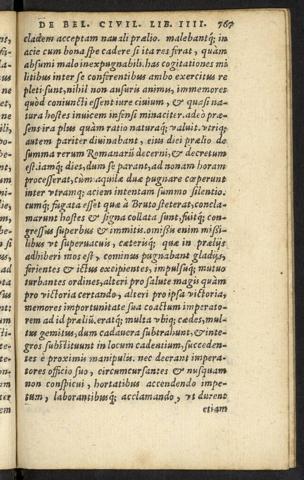 DE BEL. CIVIL. LIB. IIII. 767
cladem acceptam nauali prælio. malebantq; in
acie cum bona spe cadere si ita res firat, quàm
absumi malo inexpugnabili. has cogitationes mi
litibus inter se conferentibus ambo exercitus re
pleti sunt, nihil non ausuris animis, immemores
quòd coniuncti essent iure ciuium, & quasi na-
tura hostes inuicem infensi minaciter. adeò præ-
sens ira plus quàm ratio naturaq; valuit. vtriq;
autem pariter diuinabant, eius diei prælio de
summa rerum Romanarũ decerni, & decretum
est. iamq; dies, dum se parant, ad nonam horam
processerat, cùm aquilæ duæ pugnare cœperunt
inter vtramq; aciem intentam summo silentio.
cumq; fugata esset quæ à Bruto steterat, concla-
marunt hostes & signa collata sunt, fuitq; con-
gressus superbus & immitis. omissis enim missi-
libus vt superuacuis, cæterisq; quæ in prælijs
adhiberi mos est, cominus pugnabant gladijs,
ferientes & ictus excipientes, impulsuq; mutuo
turbantes ordines, alteri pro salute magis quàm
pro victoria certando, alteri pro ipsa victoria,
memores importunitate sua coactum imperato-
rem ad id prælij. eratq; multa vbiq; cædes, mul-
tus gemitus, dum cadauera subtrahunt, & inte-
gros substituunt in locum cadentium, succeden-
tes è proximis manipulis. nec deerant impera-
tores officio suo, circumcursantes & nusquam
non conspicui, hortatibus accendendo impe-
tum, laborantibusq; acclamando, vt durent
etiam